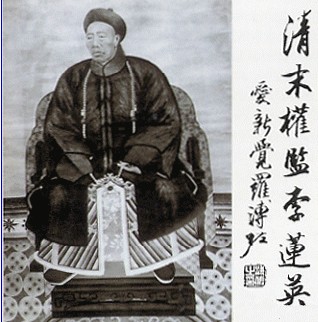 清末權監李蓮英
愛新覺羅溥